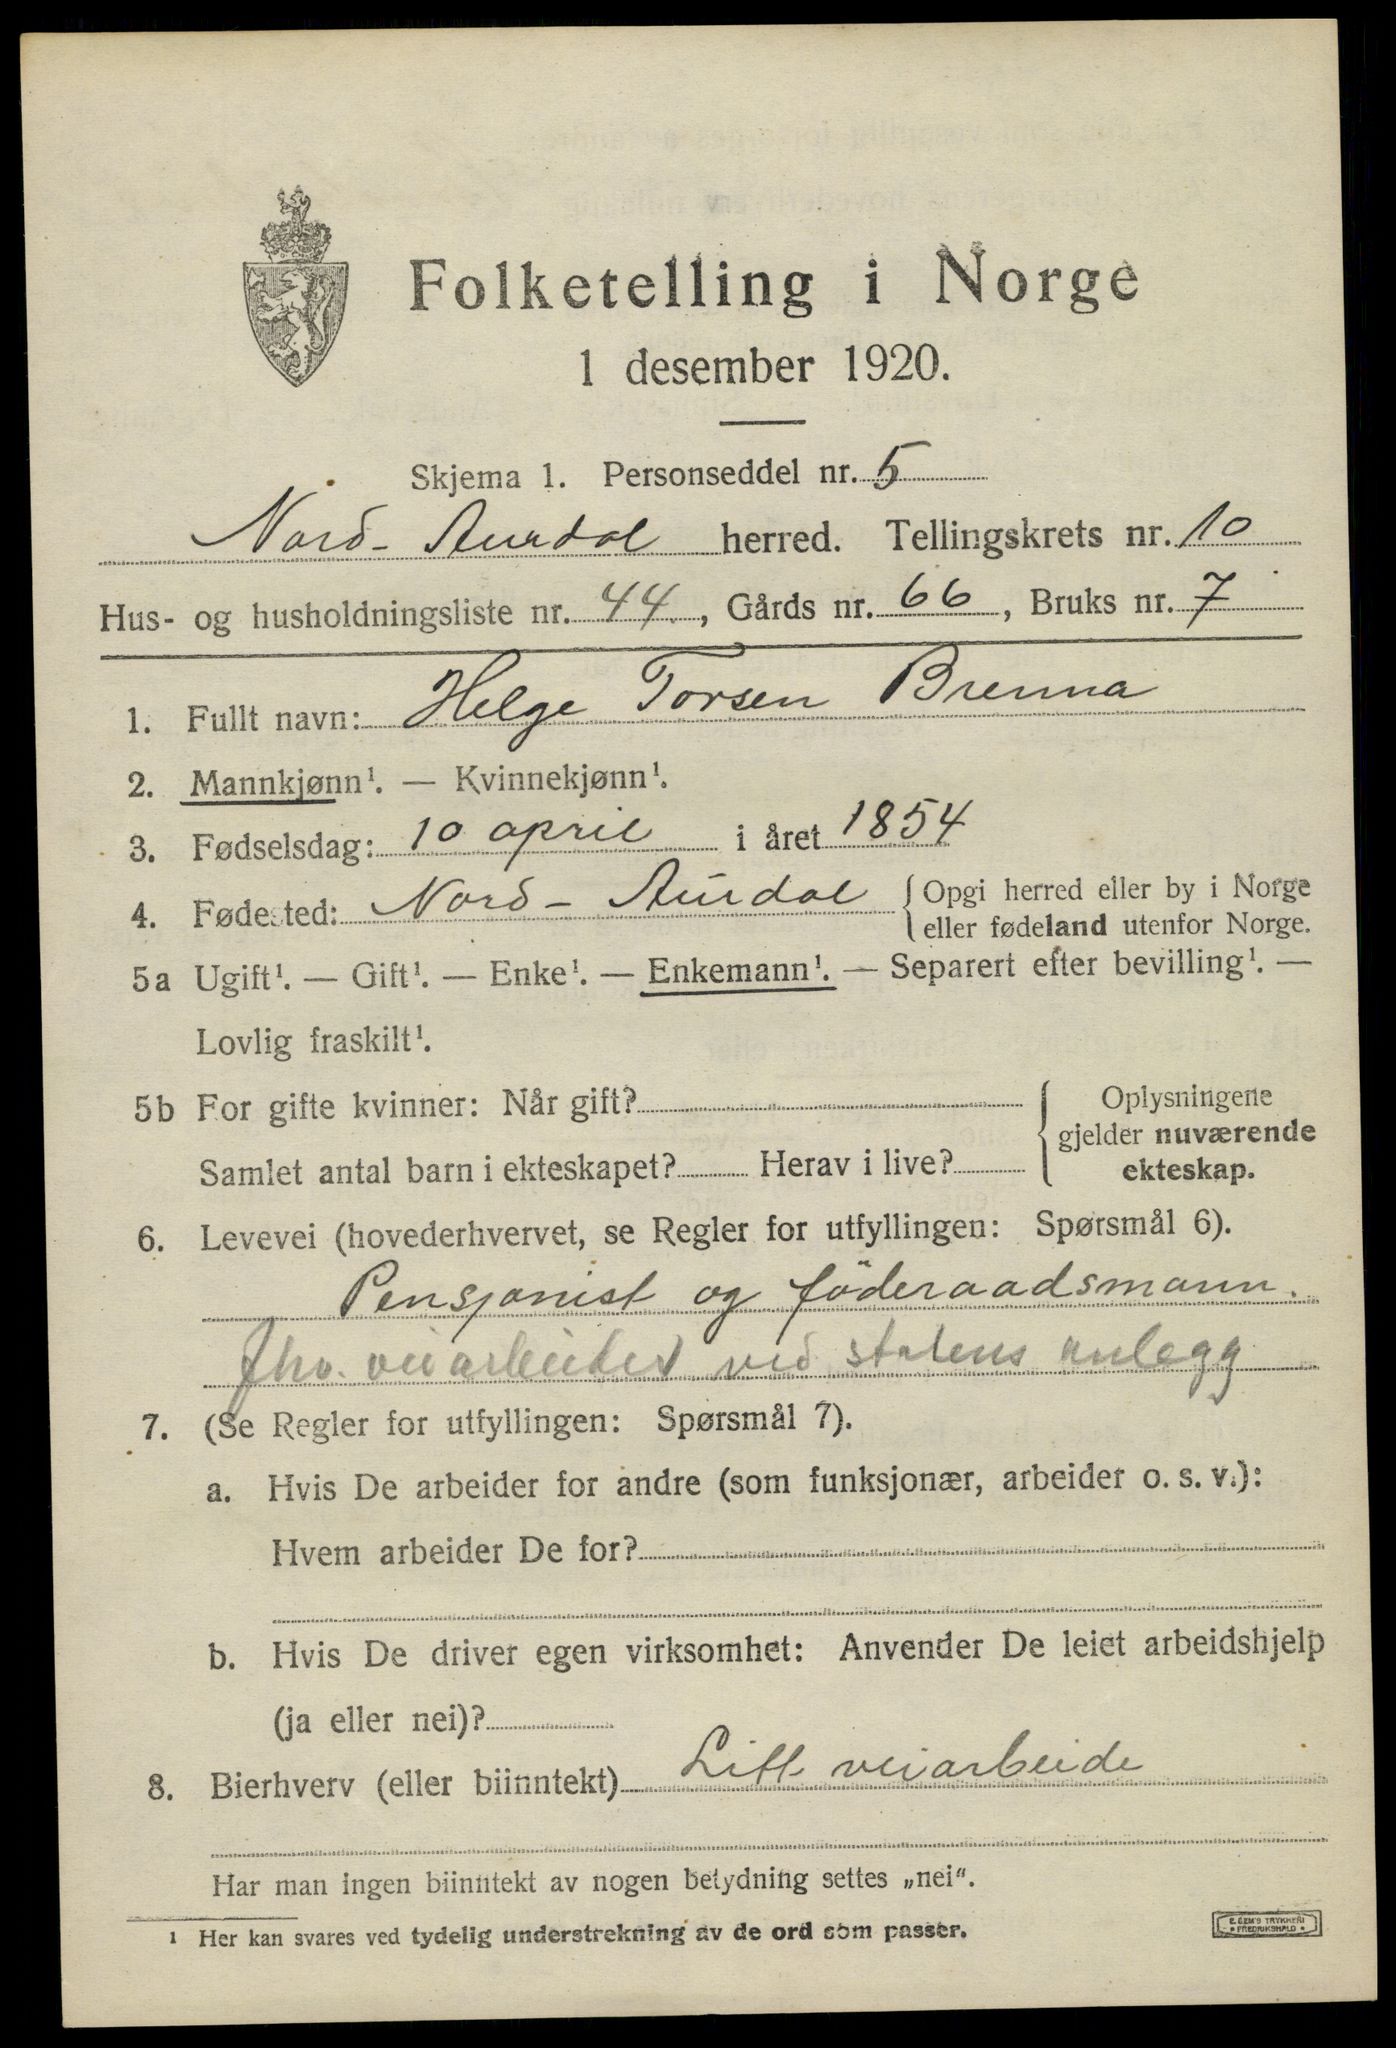 Folketelling i Norge
1 desember 1920.
Skjema 1. Personseddel nr. 5
Nord-Aurdal herred. Tellingskrets nr. 10
Hus- og husholdningsliste nr. 44, Gårds nr. 66, Bruks nr. 7
1. Fullt navn: Helge Torsen Brenna
2. Mannkjønn¹. — Kvinnekjønn¹.
3. Fødselsdag: 10 april i året 1854
4. Fødested: Nord-Aurdal { Opgi herred eller by i Norge
eller fødeland utenfor Norge.
5a Ugift¹. — Gift¹. — Enke¹. — Enkemann¹. — Separert efter bevilling¹. —
Lovlig fraskilt¹.
5b For gifte kvinner: Når gift? { Oplysningene
gjelder nuværende
Samlet antal barn i ekteskapet? Herav i live? ekteskap.
6. Levevei (hovederhvervet, se Regler for utfyllingen: Spørsmål 6).
Pensjonist og föderaadsmann.
Fhv. veiarbeider ved statens anlegg
7. (Se Regler for utfyllingen: Spørsmål 7).
a. Hvis De arbeider for andre (som funksjonær, arbeider o. s. v.):
Hvem arbeider De for?
b. Hvis De driver egen virksomhet: Anvender De leiet arbeidshjelp
(ja eller nei)?
8. Bierhverv (eller biinntekt) Litt veiarbeide
Har man ingen biinntekt av nogen betydning settes „nei“.
¹ Her kan svares ved tydelig understrekning av de ord som passer.
E. SEM'S TRYKKERI
FREDRIKSHALD